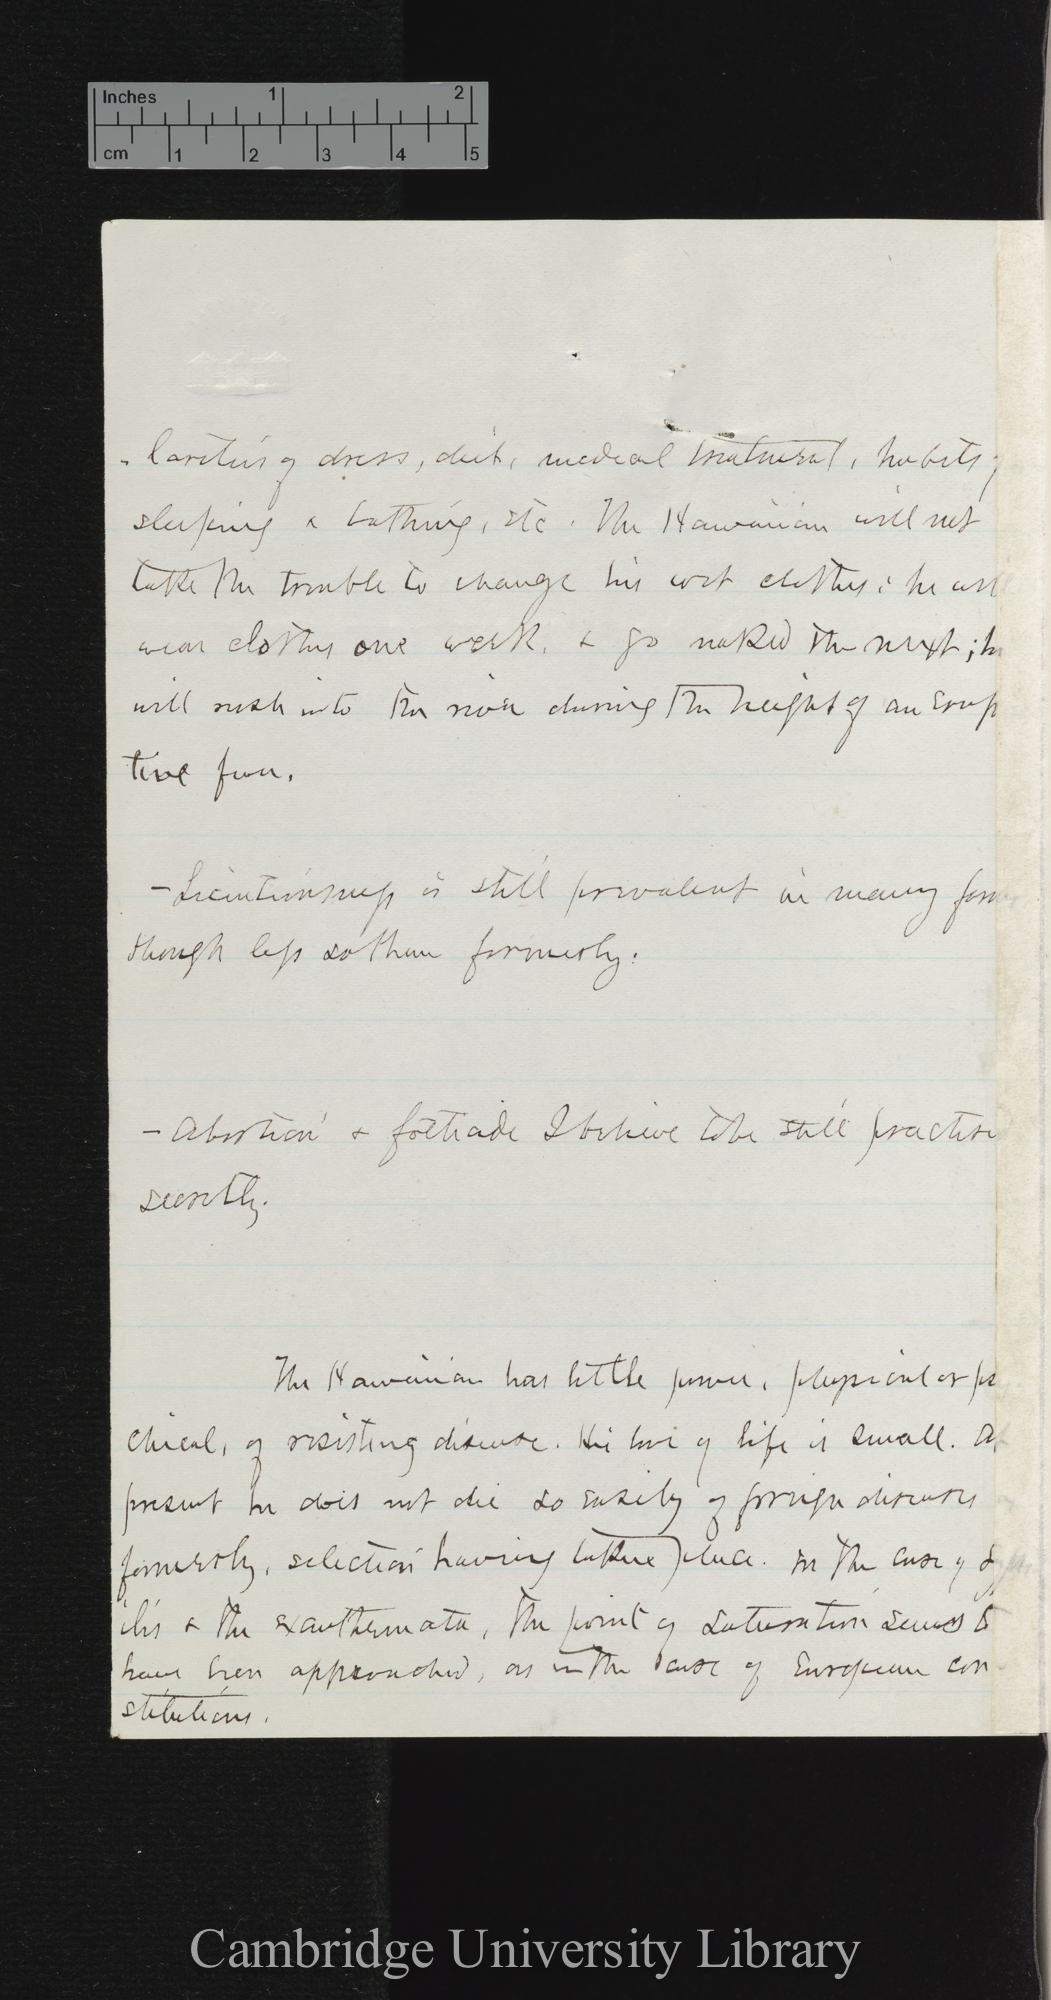 Inches 1 2
cm 1 2 3 4 5
- larities of dress, diet, medical treatment, habits of
sleeping & bathing, etc. The Hawaiian will not
take the trouble to change his wet clothes; he will
wear clothes one week, & go naked the next; he
will rush into the river during the height of an erup
tive fever.
- Licentiousness is still prevalent in many forms
though less so than formerly.
- Abortion & foeticide I believe to be still practise
secretly.
The Hawaiian has little power, physical or ps
chical, of resisting disease. His love of life is small. At
present he does not die so easily of foreign diseases
formerly, selection having taken place. In the case of Syph
ilis & the exanthemata, the point of saturation seems to
have been approached, as in the case of European con
stitutions.
Cambridge University Library